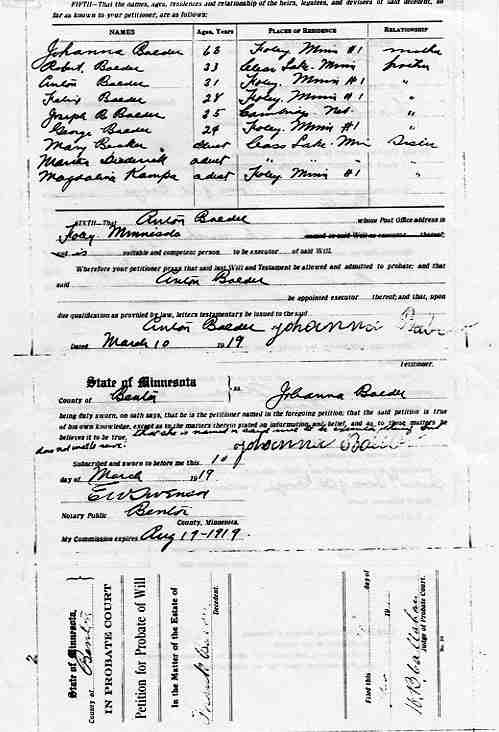 FIFTH—That the names, ages, residences and relationship of the heirs, legatees, and devisees of said decedent, so
far as known to your petitioner, are as follows:
NAMES Ages, Years PLACES OF RESIDENCE RELATIONSHIP
Johanna Baeder 63 Foley, Minn #1 mother
Robert Baeder 33 Clear Lake, Minn brother
Anton Baeder 31 Foley, Minn #1 "
Felix Baeder 28 Foley, Minn #1 "
Joseph B Baeder 25 Net. "
George Baeder 24 Foley, Minn #1 "
Mary adult Cass Lake, Min Sister
adult " " "
Magdalina Kampa adult Foley Minn #1 "
SIXTH—That Anton Baeder whose Post Office address is
Foley Minnesota named in said Will as executor thereof
and is suitable and competent person to be executor of said Will.
Wherefore your petitioner prays that said last Will and Testament be allowed and admitted to probate; and that
said Anton Baeder
be appointed executor thereof; and that, upon
due qualification as provided by law, letters testamentary be issued to the said
Anton Baeder Johanna
Dated March 10 1919
Petitioner.
State of Minnesota
County of Benton ss Johanna Baeder
being duly sworn, on oath says, that he is the petitioner named in the foregoing petition; that the said petition is true
of his own knowledge, except as to the matters therein stated on information and belief, and as to those matters he
believes it to be true, that she is named in said will to be executor thereof but
does not wish to serve. Johanna
Subscribed and sworn to before me this 10
day of March 1919.
E W Swenson
Notary Public Benton
County, Minnesota.
My Commission expires Aug 19-1919.
2
State of Minnesota,
County of Benton
IN PROBATE COURT
Petition for Probate of Will
In the Matter of the Estate of
Decedent.
Filed this day of
19
Callahan
Judge of Probate Court.